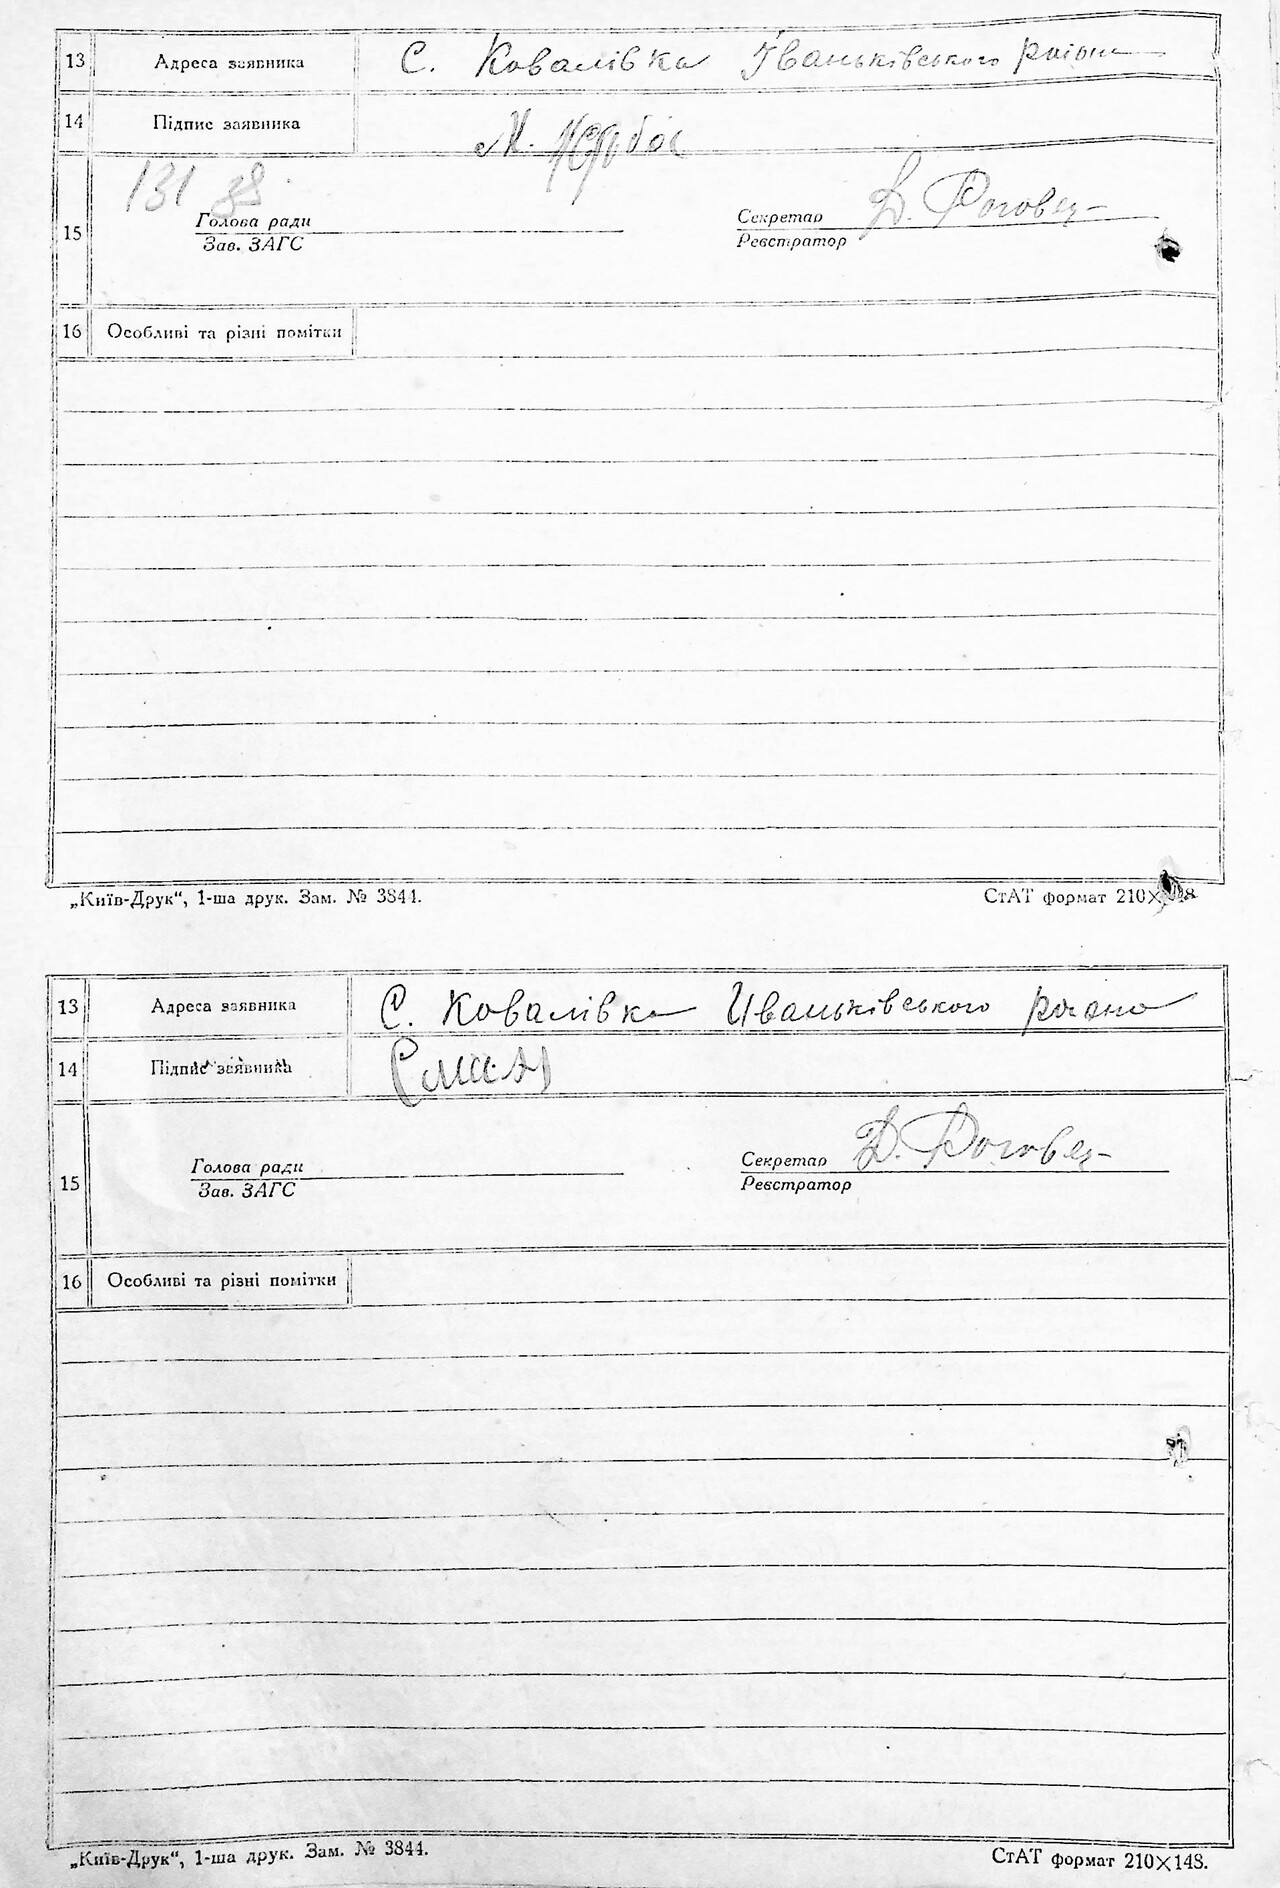 13 Адреса заявника С. Ковалівка Іваньківського району
14 Підпис заявника М.
131 38
Голова ради Секретар Д. Роговец
15
Зав. ЗАГС Реєстратор
16 Особливі та різні помітки
„Київ-Друк“, 1-ша друк. Зам. № 3844. СтАТ формат 210×148
13 Адреса заявника С. Ковалівка Иваньківського району
14 Підпис заявника
Голова ради Секретар Д. Роговец
15
Зав. ЗАГС Реєстратор
16 Особливі та різні помітки
„Київ-Друк“, 1-ша друк. Зам. № 3844. СтАТ формат 210×148.